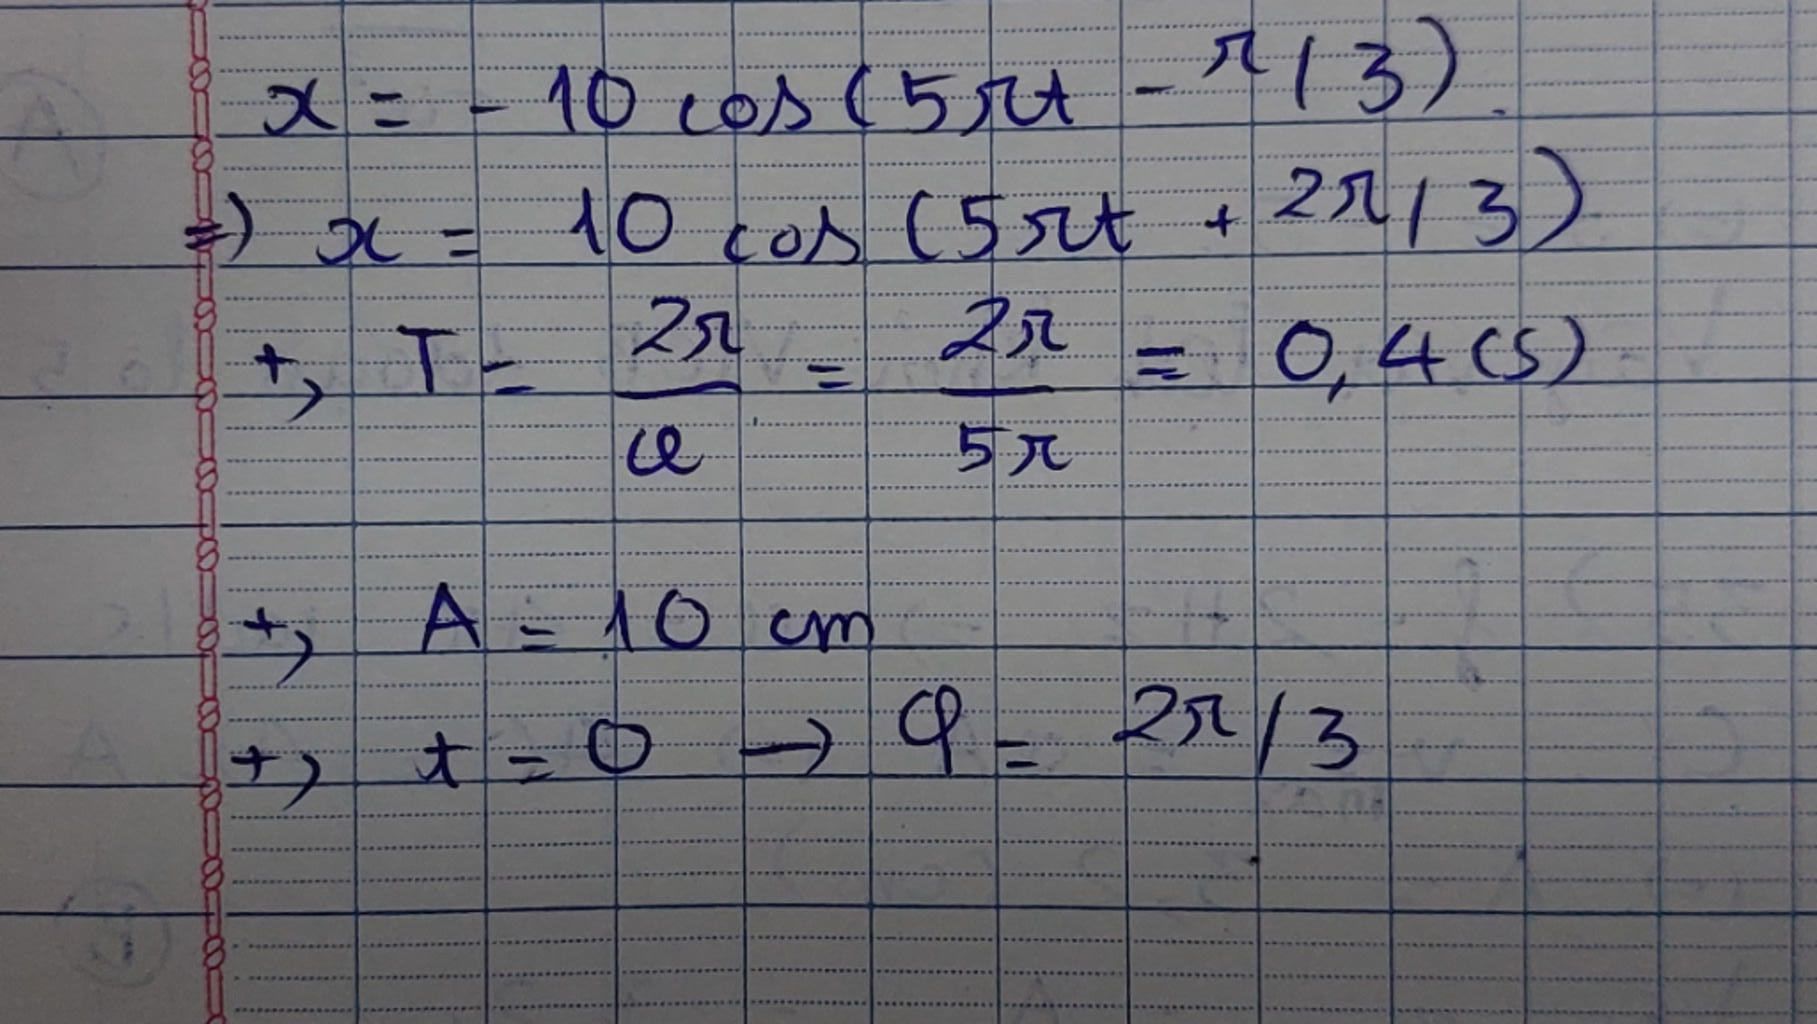 x = - 10 cos(5πt - π/3).
=) x = 10 cos (5πt + 2π/3)
+, T = 2π/ω = 2π/5π = 0,4 (s)
+, A = 10 cm
+, t = 0 → φ = 2π/3